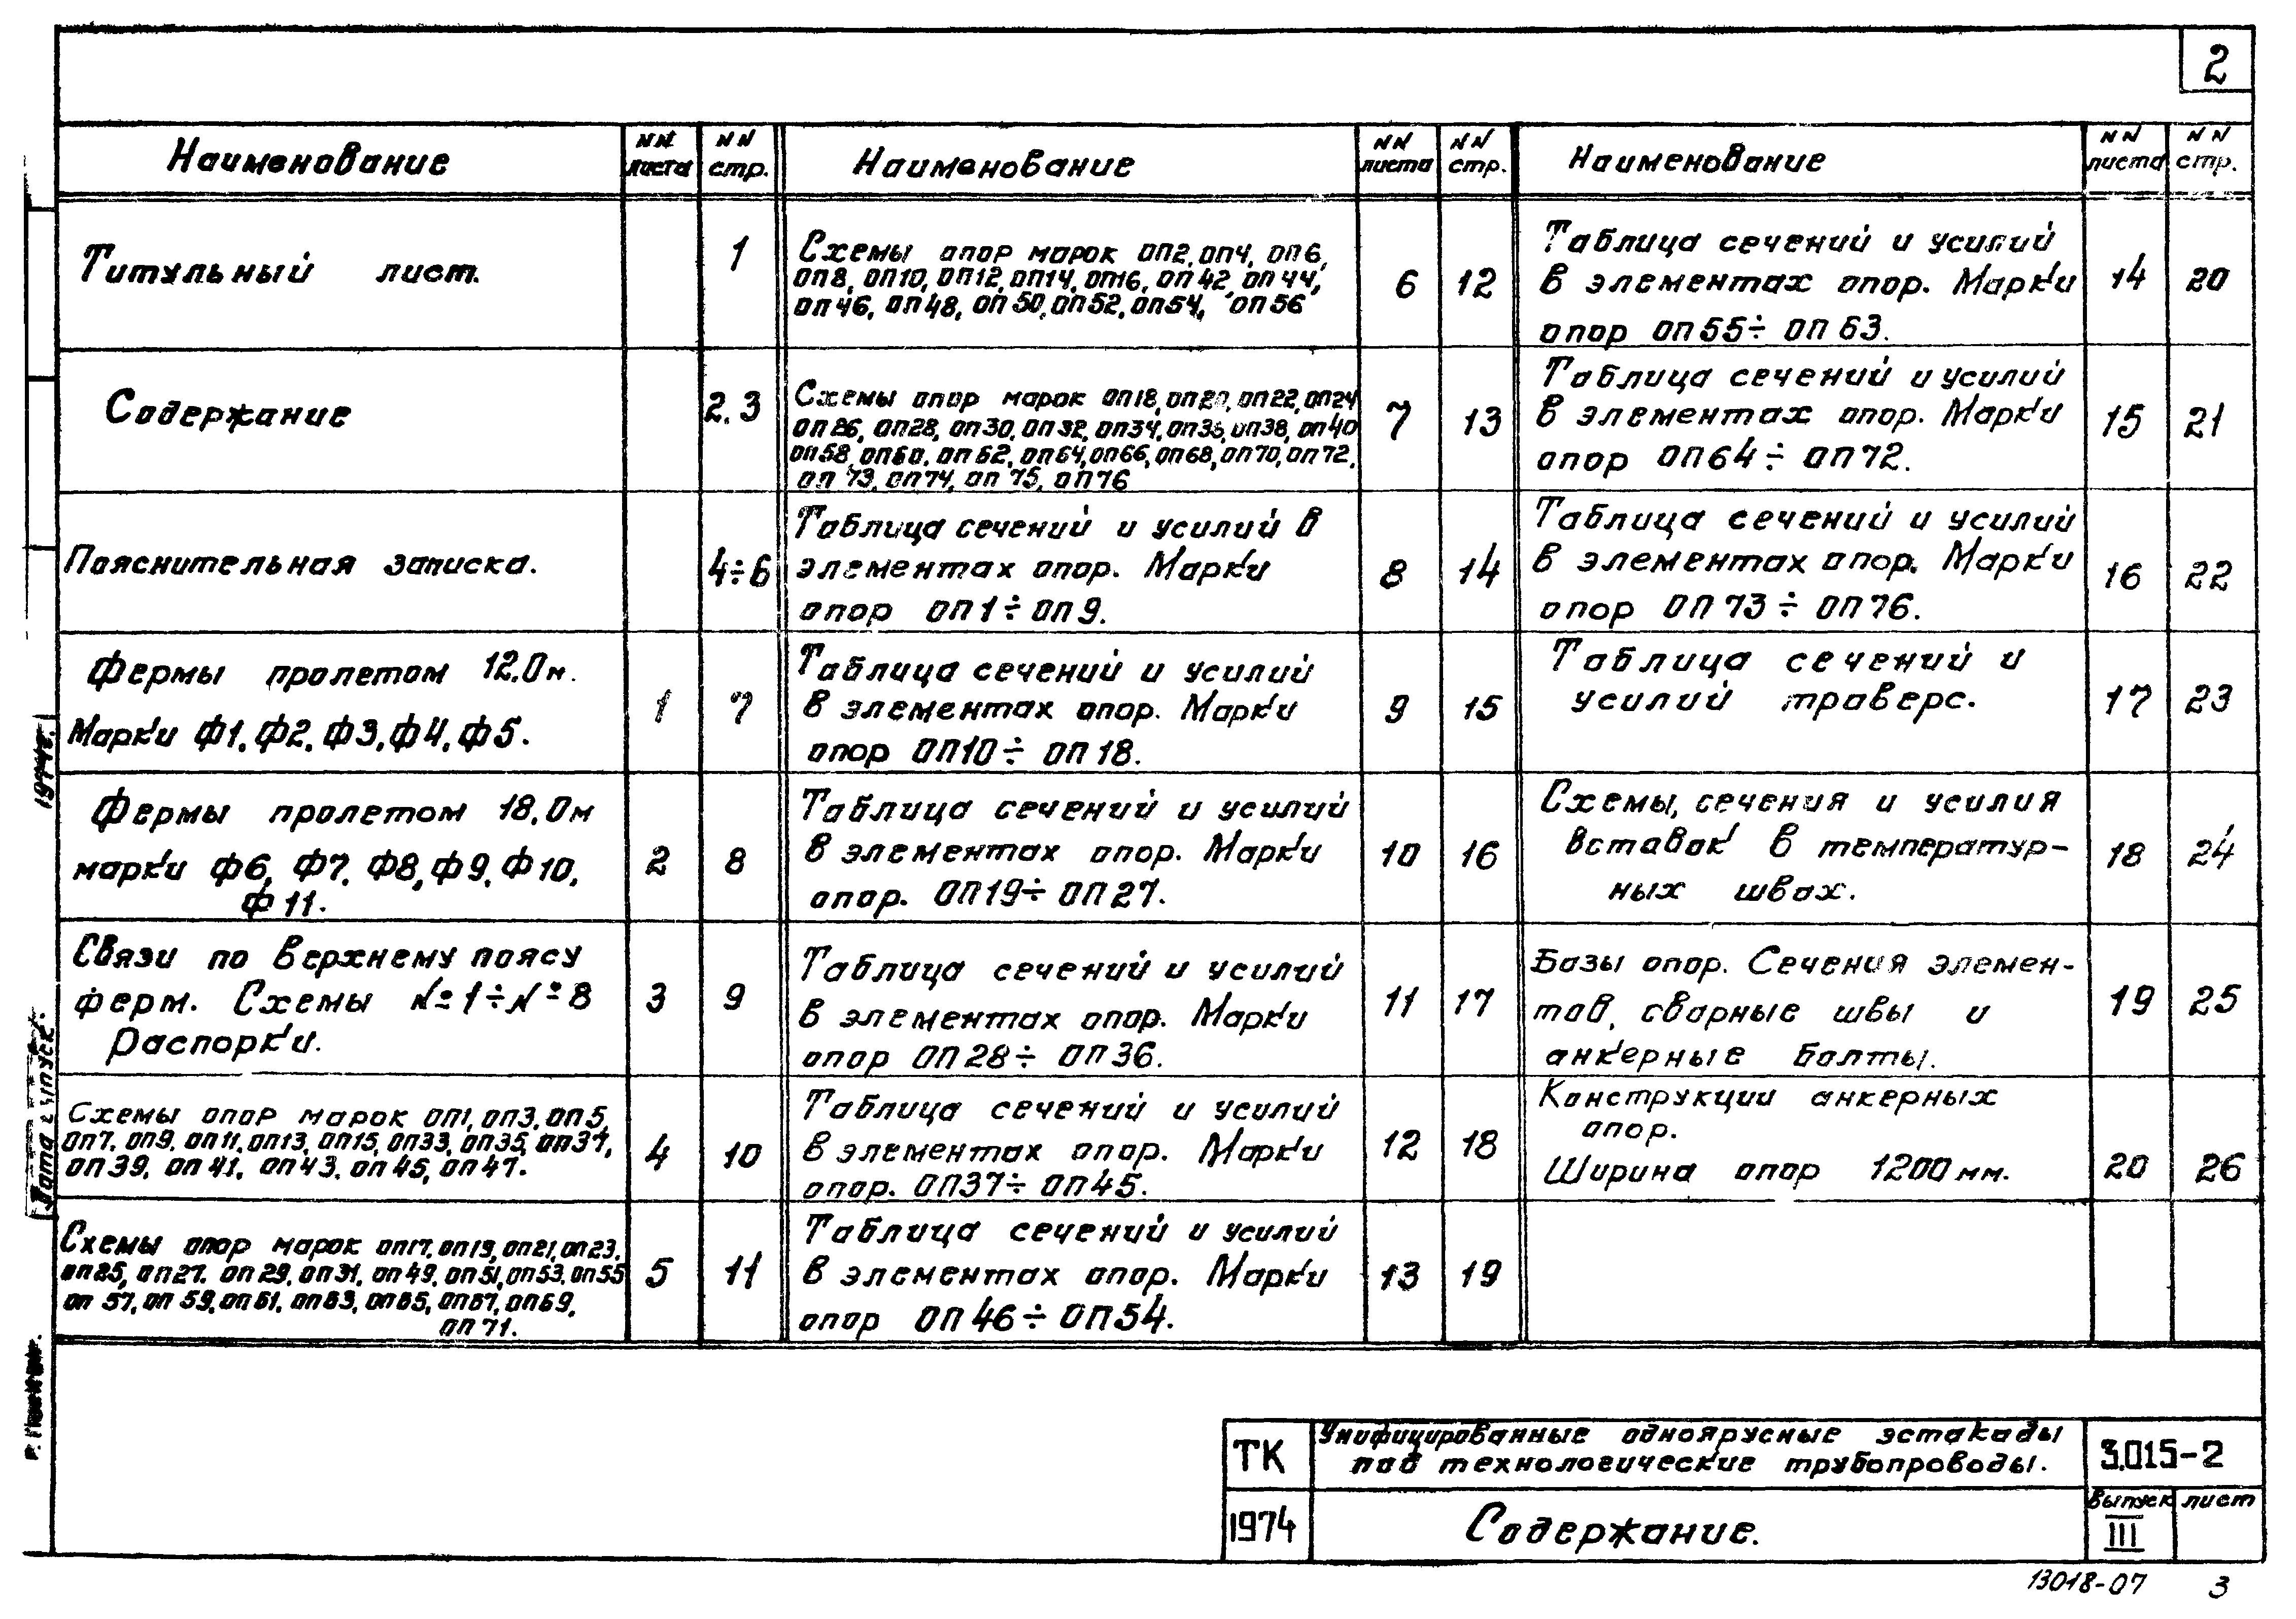 2
Наименование
NN листа
NN стр.
Титульный лист.
1
Содержание
2.3
Пояснительная записка.
4÷6
Фермы пролетом 12.0м.
Марки Ф1, Ф2, Ф3, Ф4, Ф5.
1
7
Фермы пролетом 18.0м
марки Ф6, Ф7, Ф8, Ф9, Ф10,
Ф11.
2
8
Связи по верхнему поясу
ферм. Схемы №1÷№8
Распорки.
3
9
Схемы опор марок ОП1, ОП3, ОП5,
ОП7, ОП9, ОП11, ОП13, ОП15, ОП33, ОП35, ОП37,
ОП39, ОП41, ОП43, ОП45, ОП47.
4
10
Схемы опор марок ОП17, ОП19, ОП21, ОП23,
ОП25, ОП27, ОП29, ОП31, ОП49, ОП51, ОП53, ОП55
ОП57, ОП59, ОП61, ОП63, ОП65, ОП67, ОП69,
ОП71.
5
11
Наименование
NN листа
NN стр.
Схемы опор марок ОП2, ОП4, ОП6,
ОП8, ОП10, ОП12, ОП14, ОП16, ОП42, ОП44,
ОП46, ОП48, ОП50, ОП52, ОП54, ОП56
6
12
Схемы опор марок ОП18, ОП20, ОП22, ОП24
ОП26, ОП28, ОП30, ОП32, ОП34, ОП36, ОП38, ОП40
ОП58, ОП60, ОП62, ОП64, ОП66, ОП68, ОП70, ОП72,
ОП73, ОП74, ОП75, ОП76
7
13
Таблица сечений и усилий в
элементах опор. Марки
опор ОП1÷ОП9.
8
14
Таблица сечений и усилий
в элементах опор. Марки
опор ОП10÷ОП18.
9
15
Таблица сечений и усилий
в элементах опор. Марки
опор. ОП19÷ОП27.
10
16
Таблица сечений и усилий
в элементах опор. Марки
опор ОП28÷ОП36.
11
17
Таблица сечений и усилий
в элементах опор. Марки
опор. ОП37÷ОП45.
12
18
Таблица сечений и усилий
в элементах опор. Марки
опор ОП46÷ОП54.
13
19
Наименование
NN листа
NN стр.
Таблица сечений и усилий
в элементах опор. Марки
опор ОП55÷ОП63.
14
20
Таблица сечений и усилий
в элементах опор. Марки
опор ОП64÷ОП72.
15
21
Таблица сечений и усилий
в элементах опор. Марки
опор ОП73÷ОП76.
16
22
Таблица сечений и
усилий траверс.
17
23
Схемы, сечения и усилия
вставок в температур-
ных швах.
18
24
Базы опор. Сечения элемен-
тов, сварные швы и
анкерные болты.
19
25
Конструкции анкерных
опор.
Ширина опор 1200мм.
20
26
ТК
1974
Унифицированные одноярусные эстакады
под технологические трубопроводы.
Содержание.
3.015-2
Выпуск
III
лист
13018-07
3
1974г.
Дата выпуск.